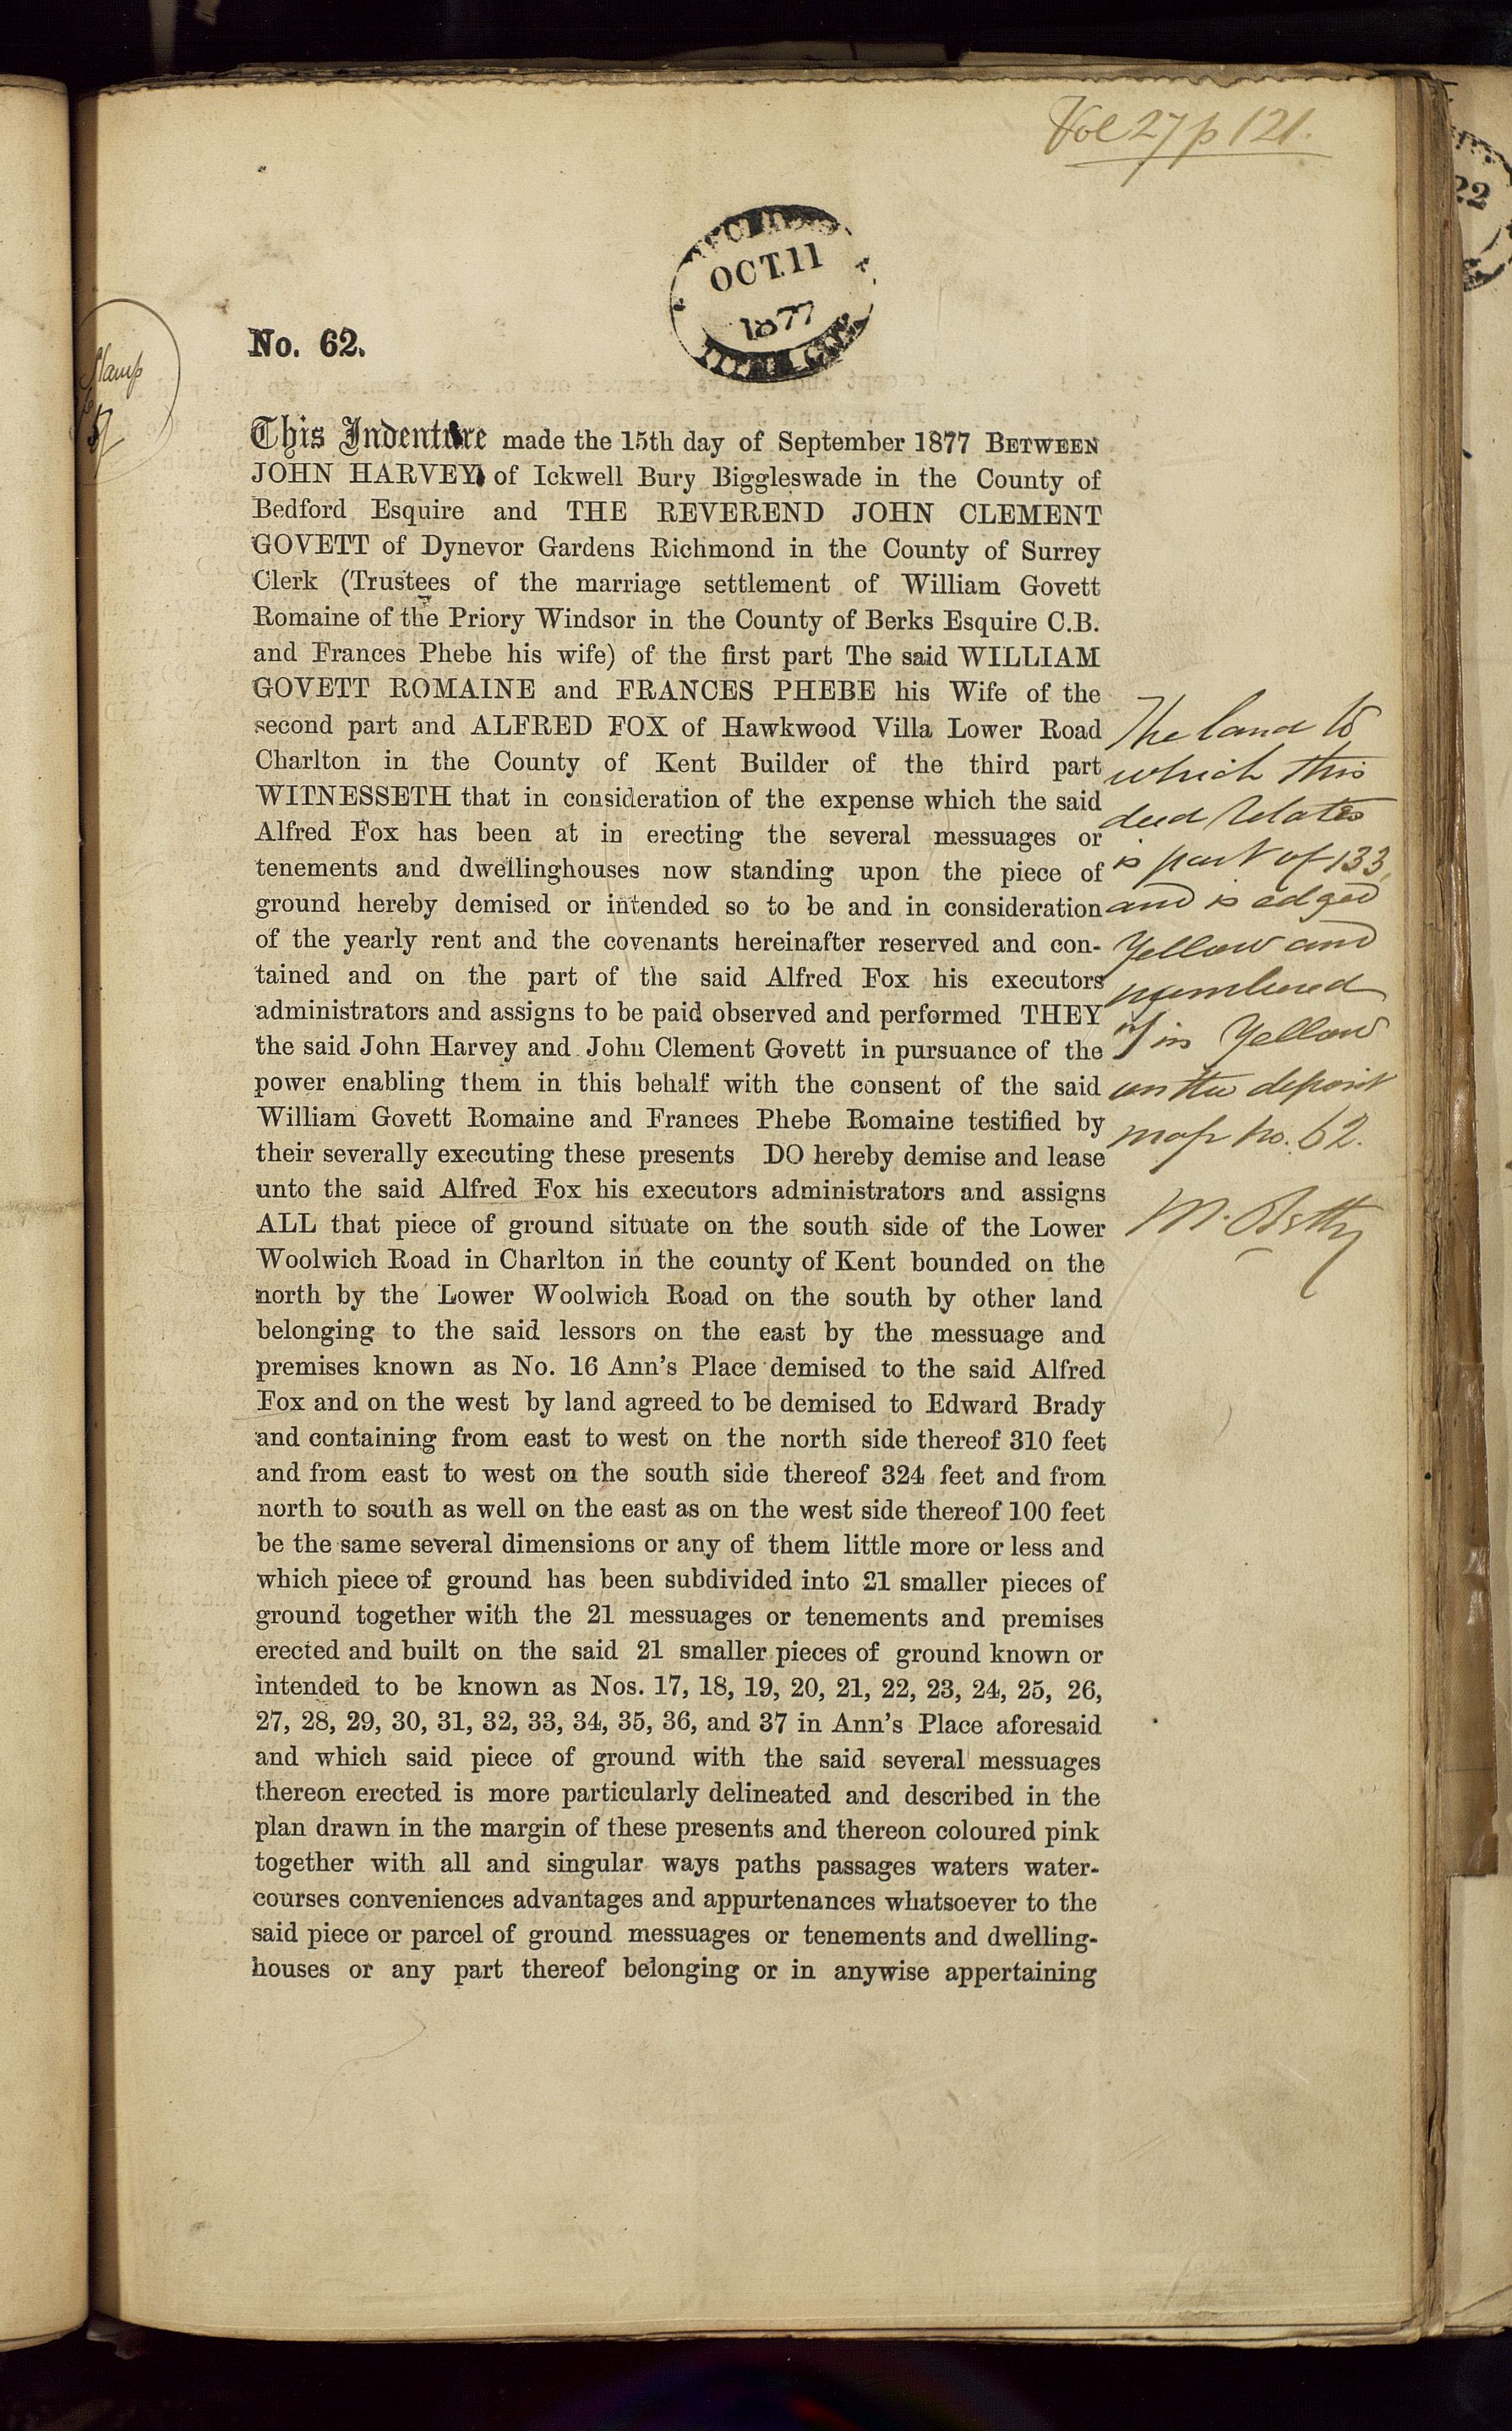 Vol 27 p 121.
OCT. 11
1877
No. 62.
Stamp
This Indenture made the 15th day of September 1877 BETWEEN
JOHN HARVEY of Ickwell Bury Biggleswade in the County of
Bedford Esquire and THE REVEREND JOHN CLEMENT
GOVETT of Dynevor Gardens Richmond in the County of Surrey
Clerk (Trustees of the marriage settlement of William Govett
Romaine of the Priory Windsor in the County of Berks Esquire C.B.
and Frances Phebe his wife) of the first part The said WILLIAM
GOVETT ROMAINE and FRANCES PHEBE his Wife of the
second part and ALFRED FOX of Hawkwood Villa Lower Road
Charlton in the County of Kent Builder of the third part
WITNESSETH that in consideration of the expense which the said
Alfred Fox has been at in erecting the several messuages or
tenements and dwellinghouses now standing upon the piece of
ground hereby demised or intended so to be and in consideration
of the yearly rent and the covenants hereinafter reserved and con-
tained and on the part of the said Alfred Fox his executors
administrators and assigns to be paid observed and performed THEY
the said John Harvey and John Clement Govett in pursuance of the
power enabling them in this behalf with the consent of the said
William Govett Romaine and Frances Phebe Romaine testified by
their severally executing these presents DO hereby demise and lease
unto the said Alfred Fox his executors administrators and assigns
ALL that piece of ground situate on the south side of the Lower
Woolwich Road in Charlton in the county of Kent bounded on the
north by the Lower Woolwich Road on the south by other land
belonging to the said lessors on the east by the messuage and
premises known as No. 16 Ann's Place demised to the said Alfred
Fox and on the west by land agreed to be demised to Edward Brady
and containing from east to west on the north side thereof 310 feet
and from east to west on the south side thereof 324 feet and from
north to south as well on the east as on the west side thereof 100 feet
be the same several dimensions or any of them little more or less and
which piece of ground has been subdivided into 21 smaller pieces of
ground together with the 21 messuages or tenements and premises
erected and built on the said 21 smaller pieces of ground known or
intended to be known as Nos. 17, 18, 19, 20, 21, 22, 23, 24, 25, 26,
27, 28, 29, 30, 31, 32, 33, 34, 35, 36, and 37 in Ann's Place aforesaid
and which said piece of ground with the said several messuages
thereon erected is more particularly delineated and described in the
plan drawn in the margin of these presents and thereon coloured pink
together with all and singular ways paths passages waters water-
courses conveniences advantages and appurtenances whatsoever to the
said piece or parcel of ground messuages or tenements and dwelling-
houses or any part thereof belonging or in anywise appertaining
The land to
which this
deed relates
is part of 133,
and is edged
Yellow and
numbered
in Yellow
on the deposit
map No. 62.
22